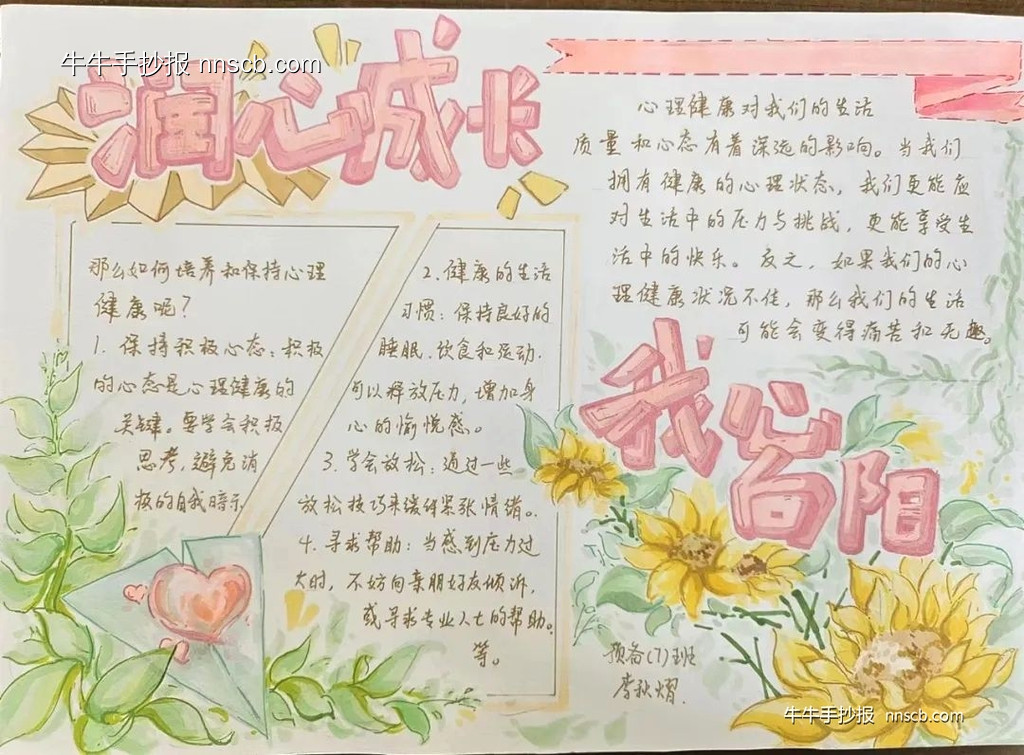 牛牛手抄报 nnscb.com
润心成长
心理健康对我们的生活
质量和心态有着深远的影响。当我们
拥有健康的心理状态，我们更能应
对生活中的压力与挑战，更能享受生
活中的快乐。反之，如果我们的心
理健康状况不佳，那么我们的生活
可能会变得痛苦和无趣。
那么如何培养和保持心理
健康呢？
1. 保持积极心态：积极
的心态是心理健康的
关键。要学会积极
思考，避免消
极的自我暗示
2. 健康的生活
习惯：保持良好的
睡眠、饮食和运动.
可以释放压力，增加身
心的愉悦感。
3. 学会放松：通过一些
放松技巧来缓解紧张情绪。
4. 寻求帮助：当感到压力过
大时，不妨向亲朋好友倾诉，
或寻求专业人士的帮助。
等。
我心
向阳
预备(7)班
李秋熠.
牛牛手抄报 nnscb.com